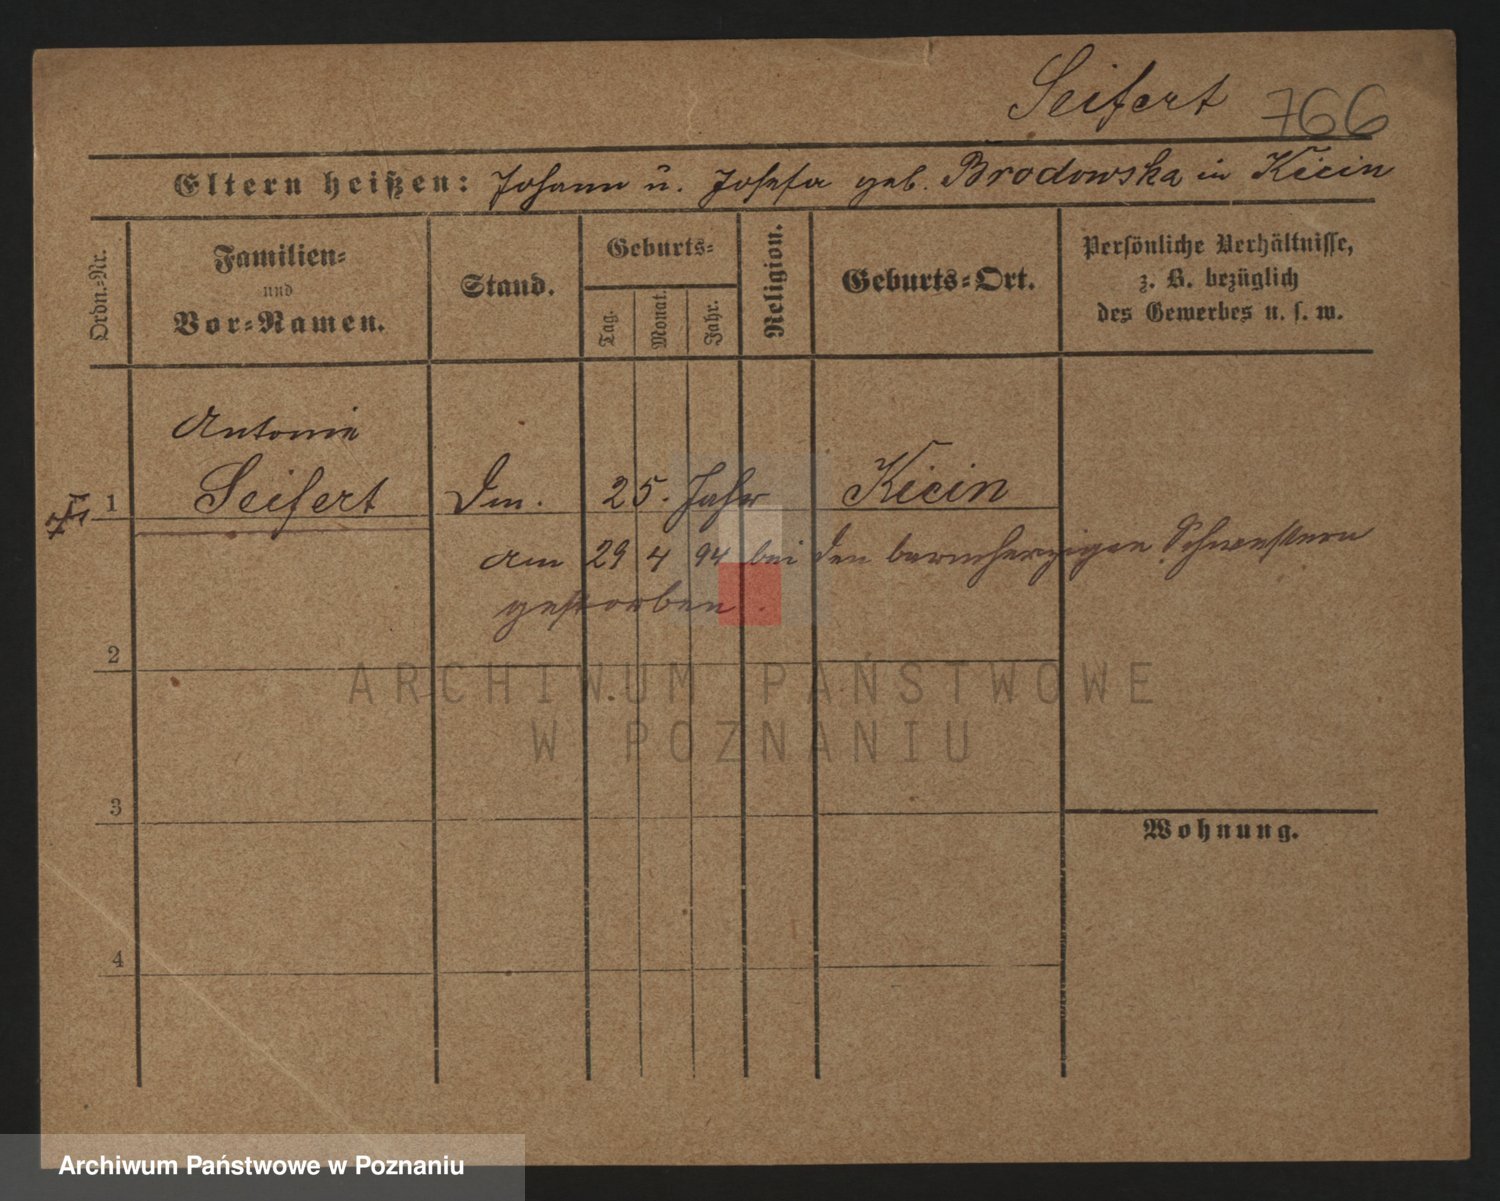 Seifert 766
Eltern heißen: Johann u. Josefa geb. Brodowska in Kicin
Ordn.-Nr.
Familien-
und
Vor-Namen.
Stand.
Geburts-
Tag.
Monat.
Jahr.
Religion.
Geburts-Ort.
Persönliche Verhältnisse,
z. B. bezüglich
des Gewerbes u. s. w.
Antonie
1 Seifert 25. Jahr Kicin
am 29 4 94 bei den barmherzigen Schwestern
gestorben.
2
ARCHIWUM PAŃSTWOWE
W POZNANIU
3
Wohnung.
4
Archiwum Państwowe w Poznaniu